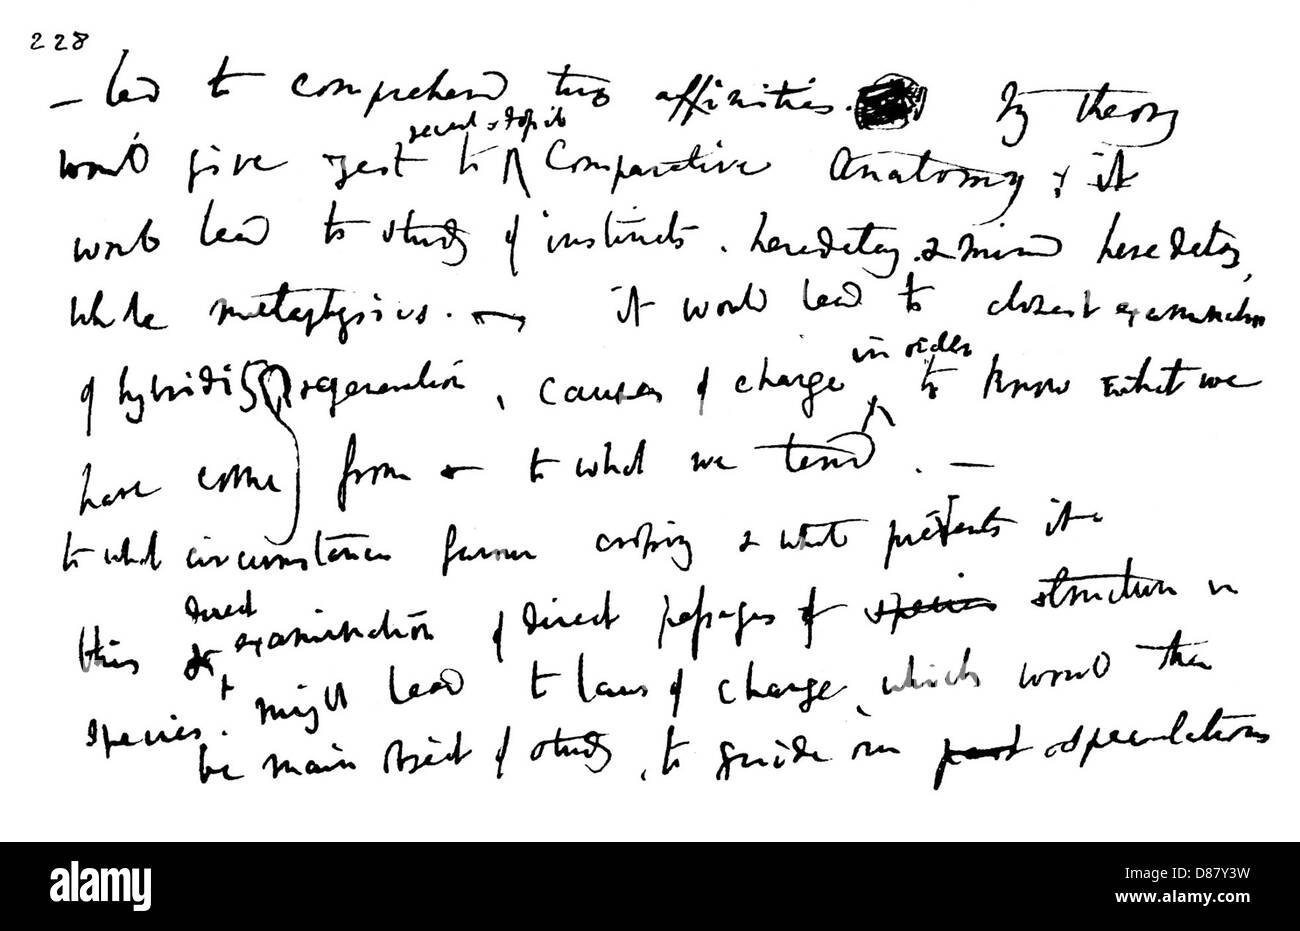 228
– led to comprehend true affinities. My theory
would give zest to recent & Fossil Comparative Anatomy, & it
would lead to study of instincts, heredetary. & mind heredetary,
whole metaphysics. – it would lead to closest examination
of hybridity regeneration, causes of change in order to know what we
have come from & to what we tend. –
to what circumstances favour crossing & what prevents it –
this & direct examination of direct passages of species structure in
species. might lead to laws of change, which would then
be main object of study, to guide our past speculations
alamy
a
a
a
a
alamy
Image ID: D87Y3W
www.alamy.com